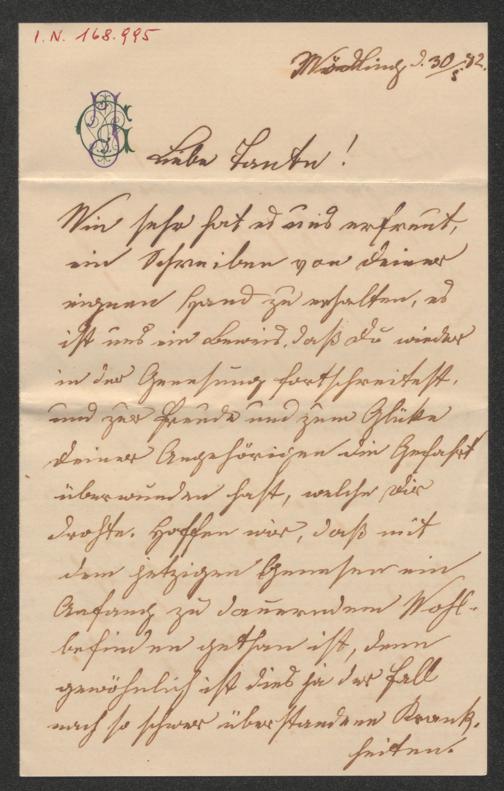 I. N. 168.995
Mödling d. 30/5. 82.
Liebe Tante!
Wie sehr hat es uns erfreut,
ein Schreiben von deiner
eignen Hand zu erhalten, es
ist uns ein Beweis, daß du wieder
in der Genesung fortschreitest,
und zur Freude und zum Glüke
deiner Angehörigen die Gefahr
überwunden hast, welche dir
drohte. Hoffen wir, daß mit
dem jetzigen Genesen ein
Anfang zu dauerndem Wohl-
befinden gethan ist, denn
gewöhnlich ist dies ja der Fall
nach so schwer überstandene Krank-
heiten.